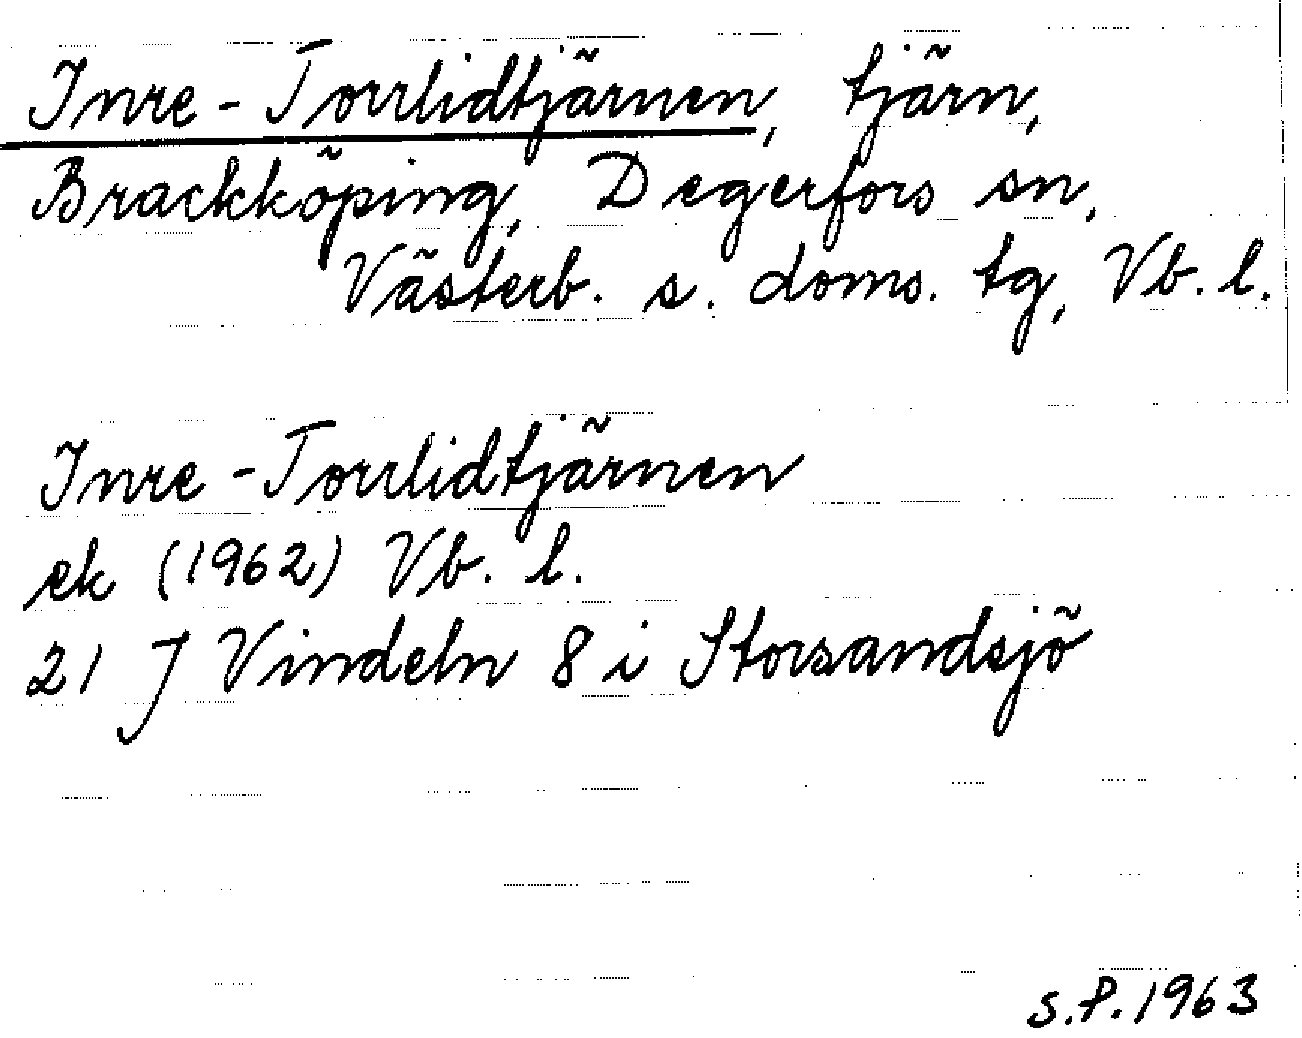 Inre-Torrlidtjärnen, tjärn,
Brackköping, Degerfors sn,
Västerb. s. doms. tg, Vb. l.
Inre-Torrlidtjärnen
ek (1962) Vb. l.
21 J Vindeln 8 i Storsandsjö
S.P. 1963